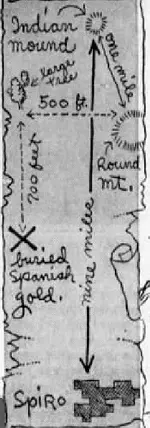 Indian
mound
one mile
large
tree
500 ft.
Round
Mt.
700 feet
buried
Spanish
gold.
nine miles
Spiro